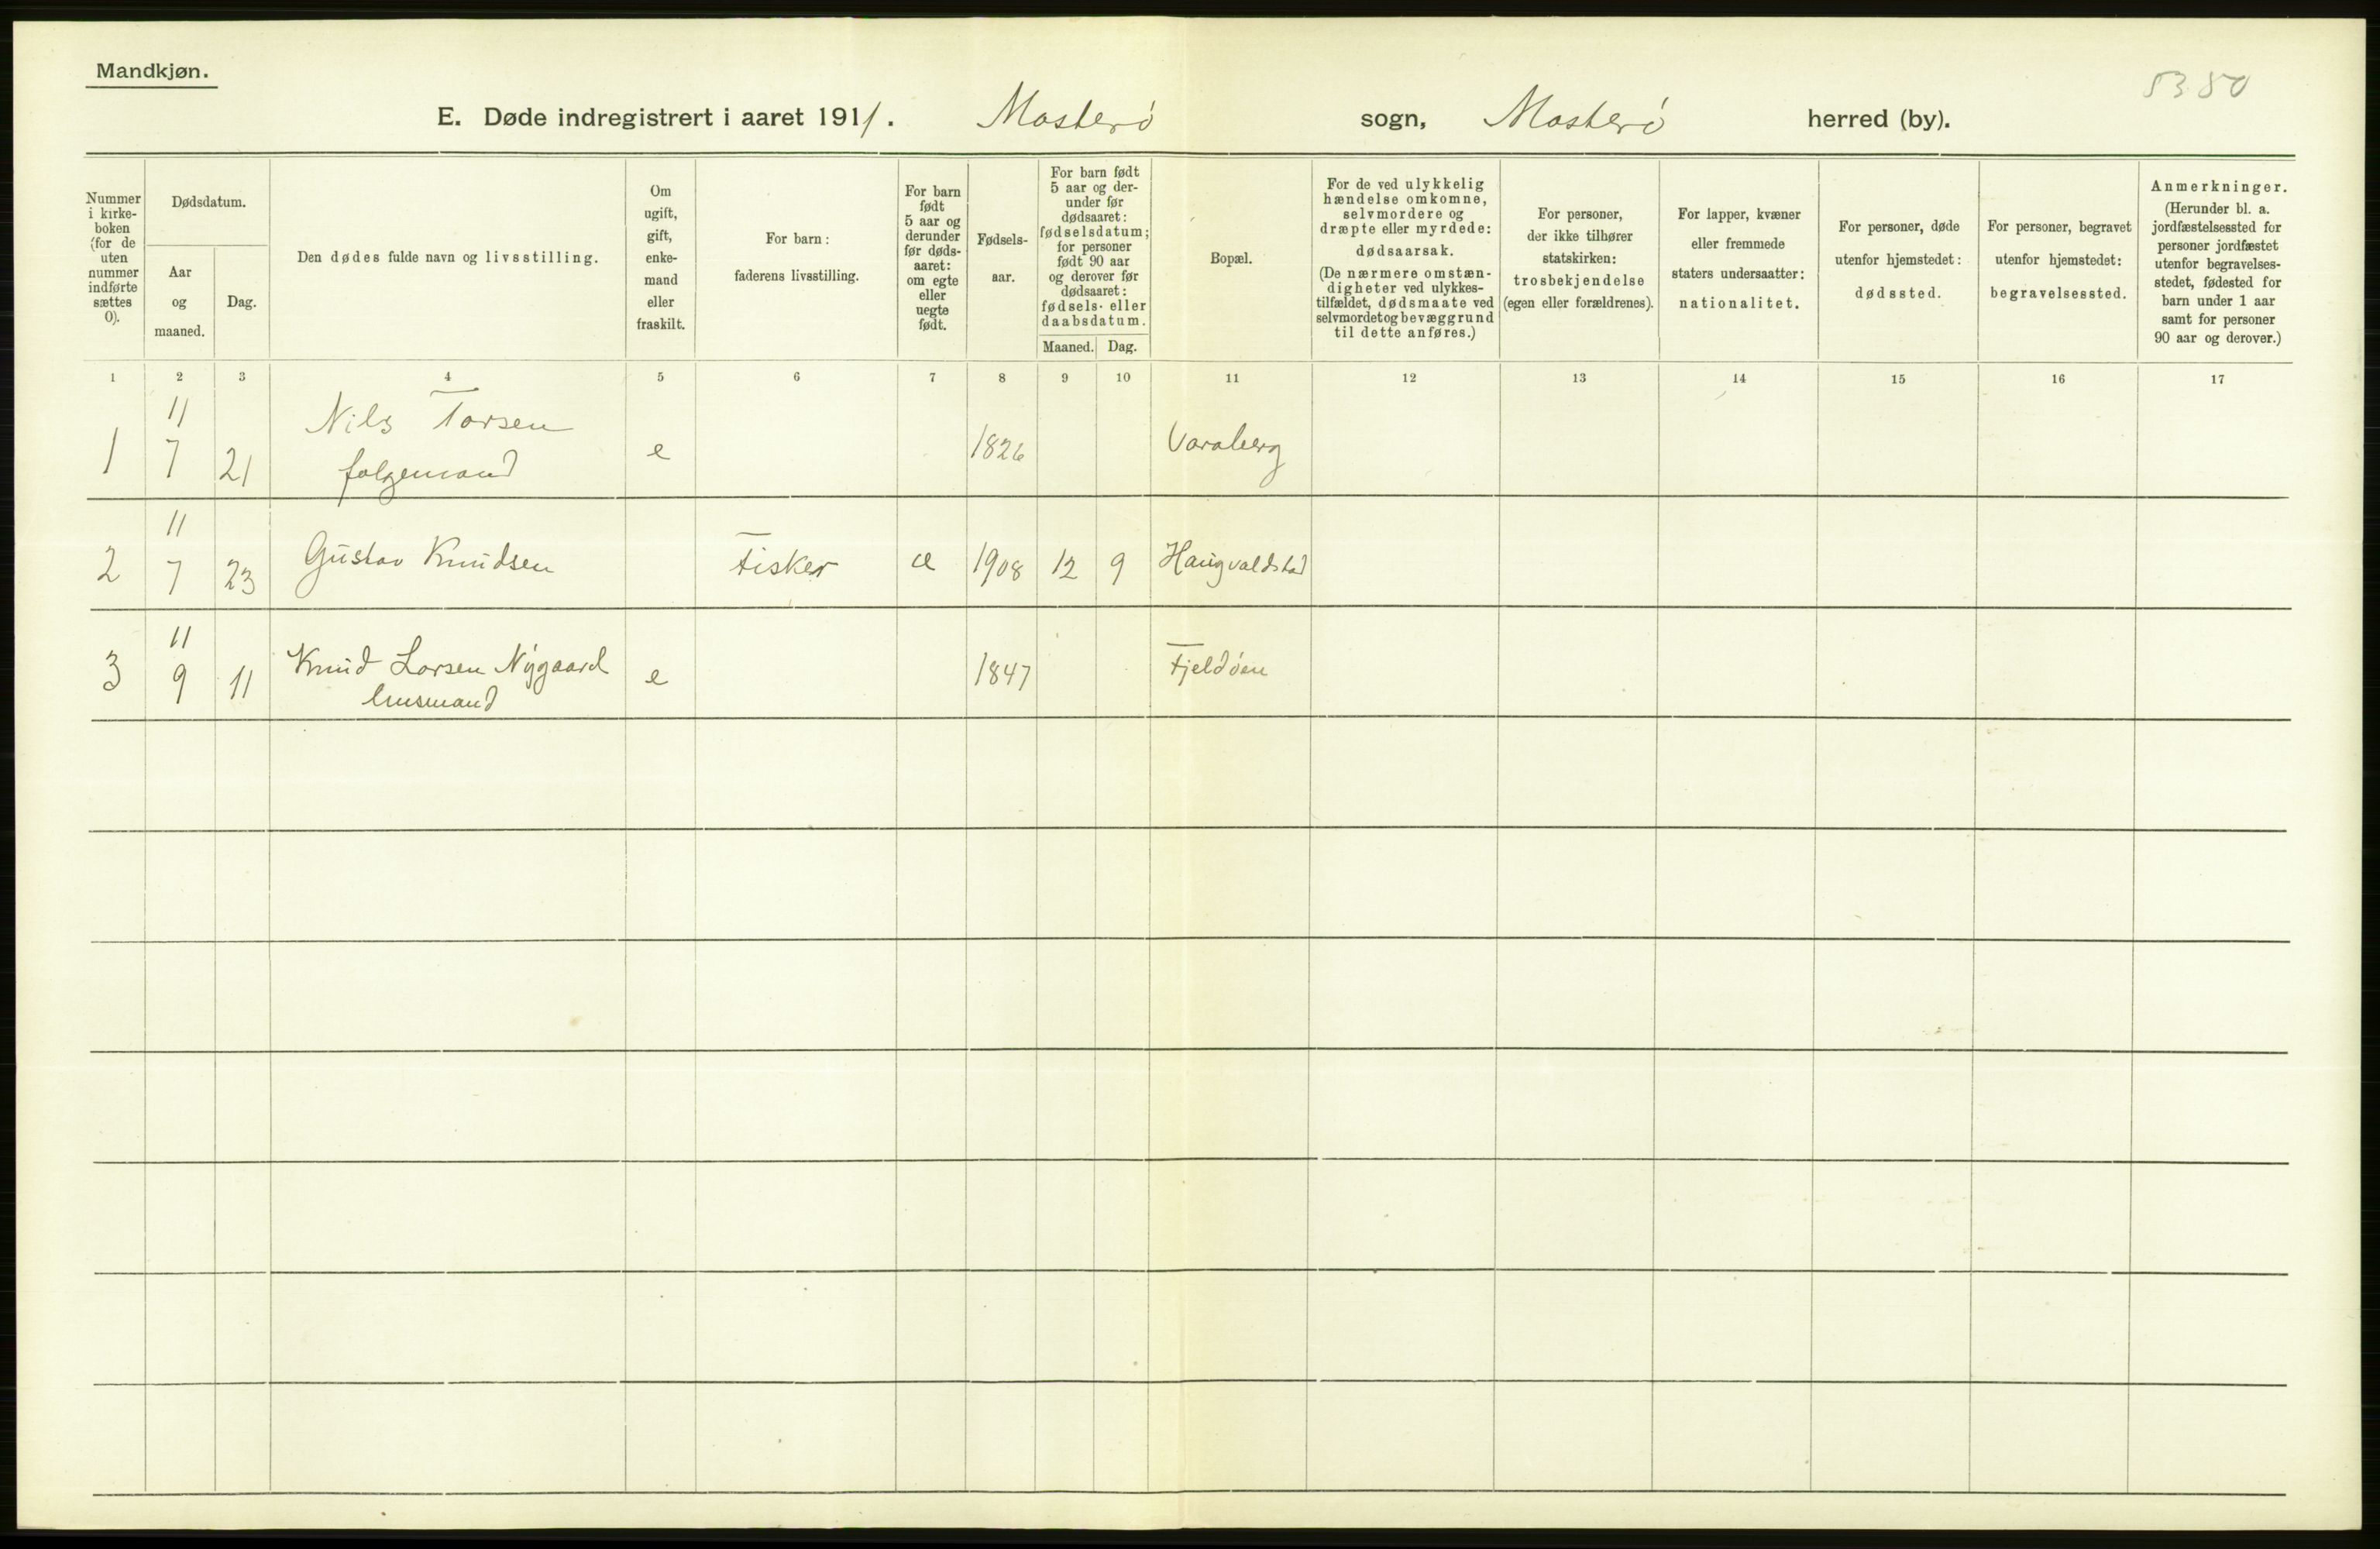 Mandkjøn.
5380
E. Døde indregistrert i aaret 1911. Mosterö sogn, Mosterö herred (by).
Nummer i kirke-boken (for de uten nummer indførte sættes 0).
Dødsdatum.
Aar og maaned.
Dag.
Den dødes fulde navn og livsstilling.
Om ugift, gift, enke-mand eller fraskilt.
For barn: faderens livsstilling.
For barn født 5 aar og derunder før døds-aaret: om egte eller uegte født.
Fødsels-aar.
For barn født 5 aar og der-under før dødsaaret: fødselsdatum; for personer født 90 aar og derover før dødsaaret: fødsels- eller daabsdatum.
Maaned. Dag.
Bopæl.
For de ved ulykkelig hændelse omkomne, selvmordere og dræpte eller myrdede: dødsaarsak. (De nærmere omstæn-digheter ved ulykkes-tilfældet, dødsmaate ved selvmordet og bevæggrund til dette anføres.)
For personer, der ikke tilhører statskirken: trosbekjendelse (egen eller forældrenes).
For lapper, kvæner eller fremmede staters undersaatter: nationalitet.
For personer, døde utenfor hjemstedet: dødssted.
For personer, begravet utenfor hjemstedet: begravelsessted.
Anmerkninger. (Herunder bl. a. jordfæstelsessted for personer jordfæstet utenfor begravelses-stedet, fødested for barn under 1 aar samt for personer 90 aar og derover.)
1 2 3 4 5 6 7 8 9 10 11 12 13 14 15 16 17
11 Nils Torsen
1 7 21 folgemand e 1826 Varaberg
11
2 7 23 Gustav Knudsen Fisker e 1908 12 9 Haugvaldstad
11
3 9 11 Knud Larsen Nygaard e 1847 Fjeldöen
husmand